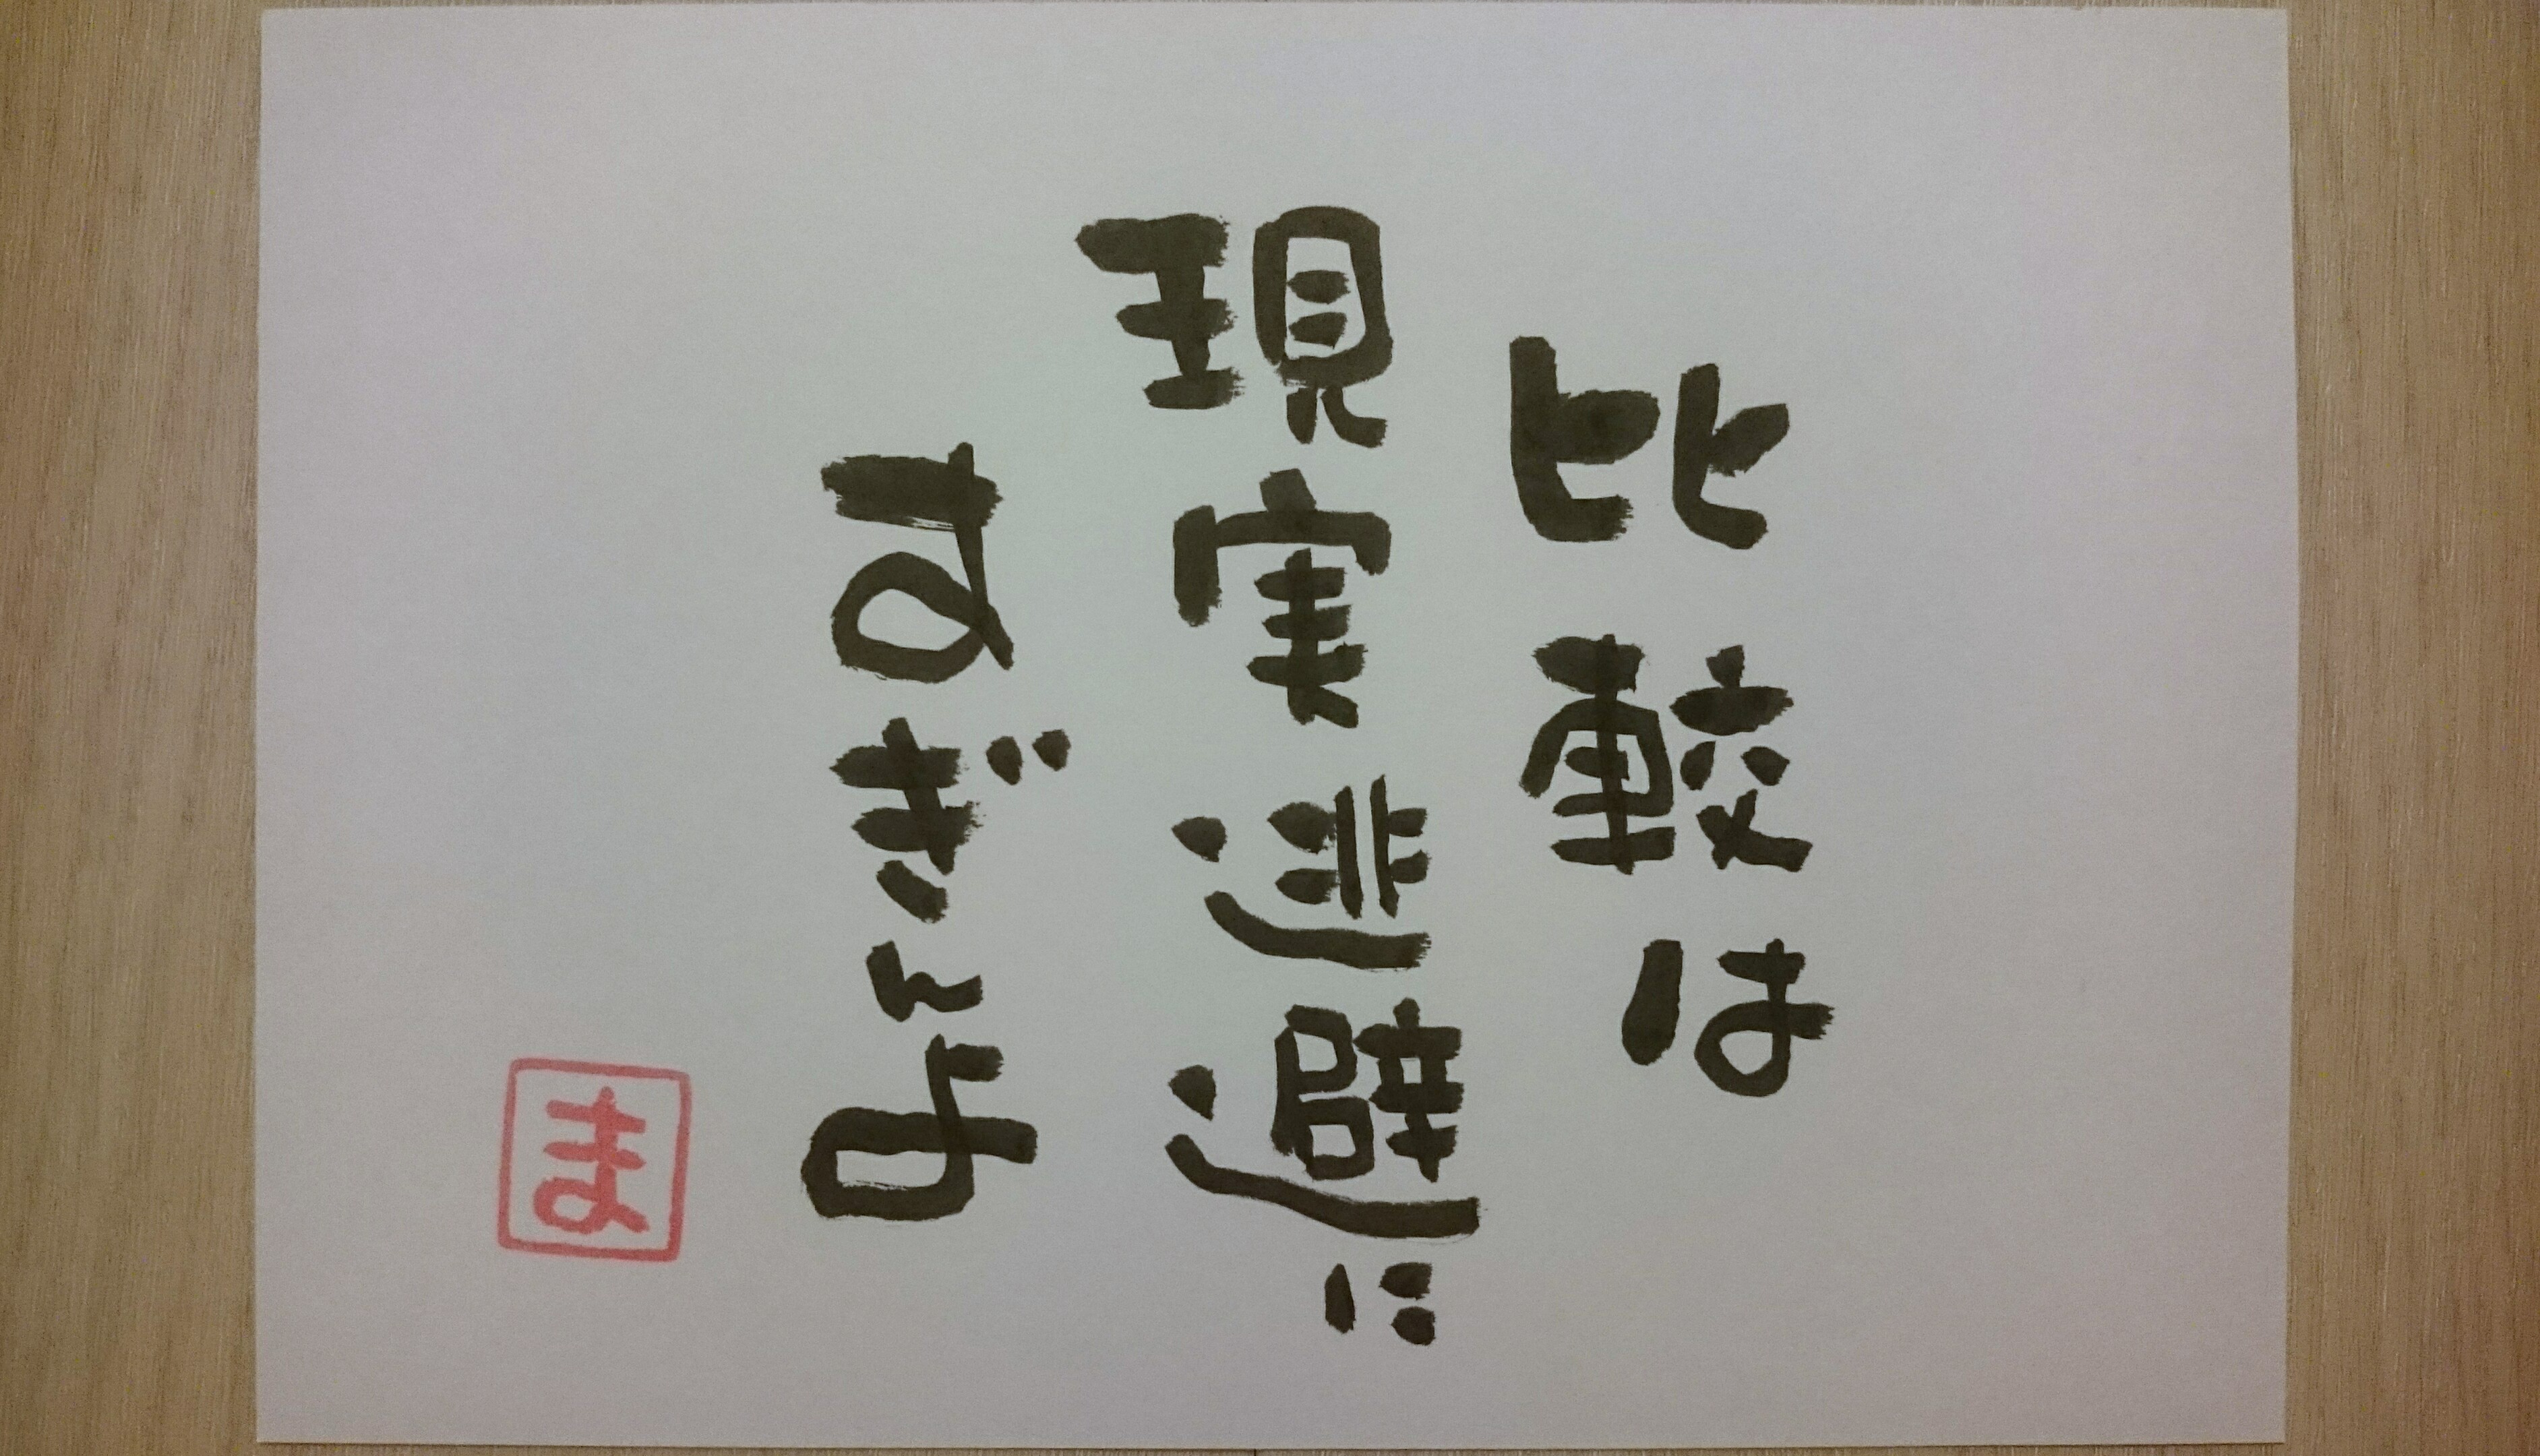 比較は
現実逃避に
すぎんよ
ま